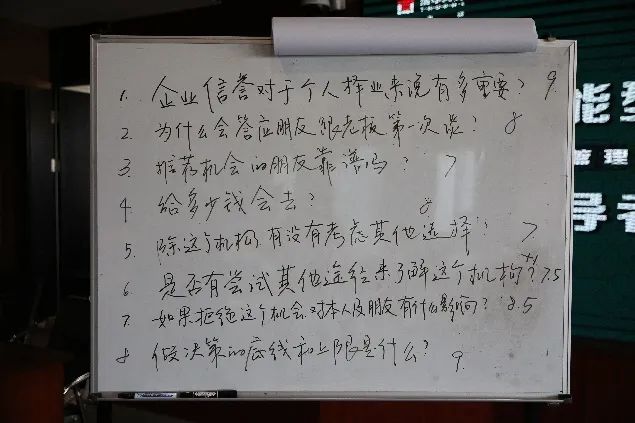 1. 企业信誉对于个人择业来说有多重要? 9.
2. 为什么会答应朋友跟老板第一次谈? 8
3. 推荐机会的朋友靠谱吗? 7
4 给多少钱会去? 8
5. 除这个机构,有没有考虑其他选择? 7
6 是否有尝试其他途径来了解这个机构? 7.5
7. 如果拒绝这个机会,对本人及朋友有什么影响? 8.5
8 做决策的底线和上限是什么? 9.
能
管理
导者